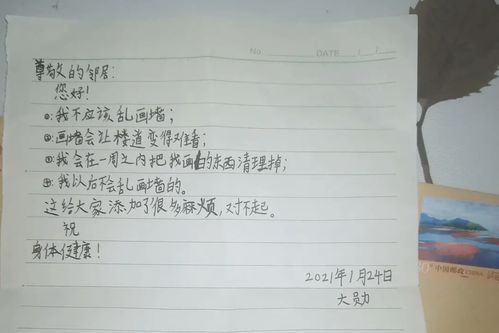 No.
DATE / /
尊敬的邻居：
您好！
①：我不应该乱画墙；
②：画墙会让楼道变得难看；
③：我会在一周之内把我画的东西清理掉；
④：我以后不会乱画墙的。
这给大家添加了很多麻烦，对不起。
祝
身体健康！
2021年1月24日
大勋
中国邮政 CHINA